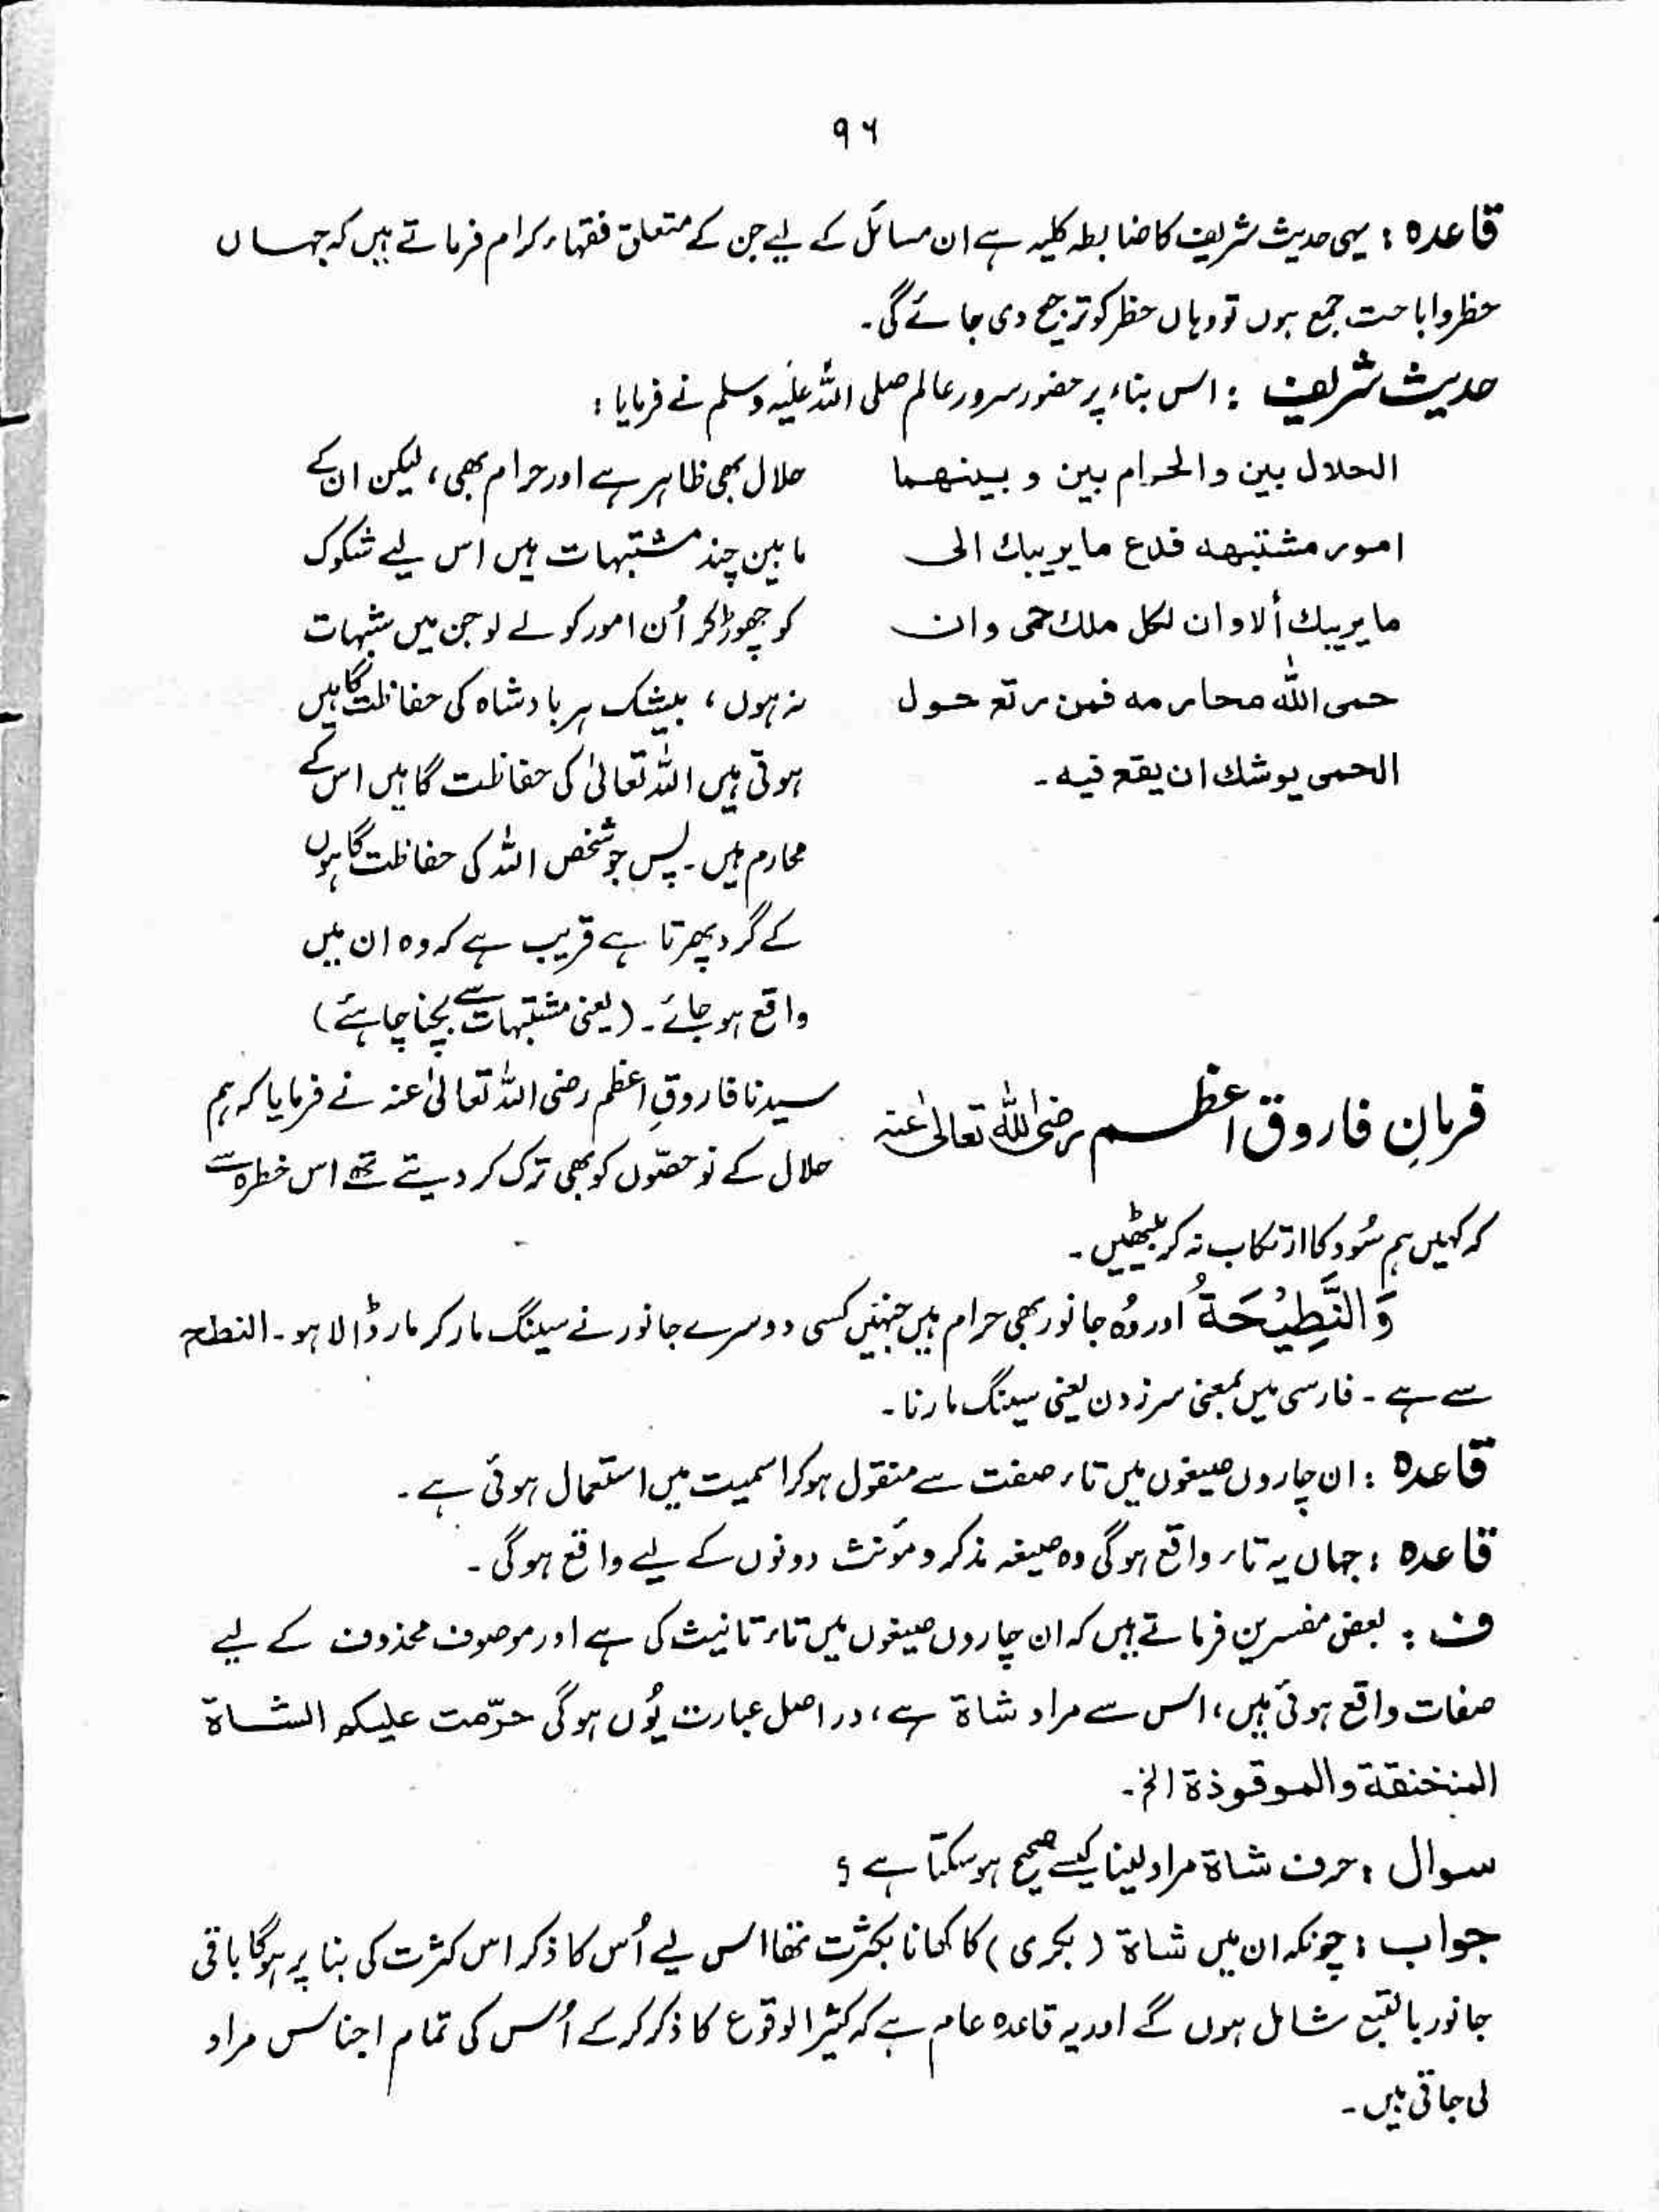 ۹۶
قاعدہ : یہی حدیث شریف کا ضابطہ کلیہ ہے ان مسائل کے لیے جن کے متعلق فقہاء کرام فرماتے ہیں کہ جہاں
حظر و اباحت جمع ہوں تو وہاں حظر کو ترجیح دی جائے گی۔
حدیث شریف : اس بناء پر حضور سرور عالم صلی اللہ علیہ وسلم نے فرمایا :
الحلال بین والحرام بین و بینھما
امور مشتبھہ فدع ما یریبك الی
ما یریبك ألا وان لکل ملك حمی وان
حمی اللہ محارمہ فمن رتع حول
الحمی یوشك ان یقع فیہ۔
حلال بھی ظاہر ہے اور حرام بھی، لیکن ان کے
مابین چند مشتبہات ہیں اس لیے شکوک
کو چھوڑ کر اُن امور کو لے لو جن میں شبہات
نہ ہوں، بیشک ہر بادشاہ کی حفاظت گاہیں
ہوتی ہیں اللہ تعالیٰ کی حفاظت گاہیں اس کے
محارم ہیں۔ پس جو شخص اللہ کی حفاظت گاہوں
کے گرد پھرتا ہے قریب ہے کہ وہ ان میں
واقع ہو جائے۔ (یعنی مشتبہات سے بچنا چاہئے)
فرمانِ فاروق اعظم رضی اللہ تعالیٰ عنہ
سیدنا فاروقِ اعظم رضی اللہ تعالیٰ عنہ نے فرمایا کہ ہم
حلال کے نو حصّوں کو بھی ترک کر دیتے تھے اس خطرہ سے
کہ کہیں ہم سُود کا ارتکاب نہ کر بیٹھیں۔
وَالنَّطِیْحَةُ اور وُہ جانور بھی حرام ہیں جنہیں کسی دوسرے جانور نے سینگ مار کر مار ڈالا ہو۔ النطح
سے ہے۔ فارسی میں بمعنی سر زدن یعنی سینگ مارنا۔
قاعدہ : ان چاروں صیغوں میں تاء صفت سے منقول ہو کر اسمیت میں استعمال ہوئی ہے۔
قاعدہ : جہاں یہ تاء واقع ہوگی وہ صیغہ مذکر و مؤنث دونوں کے لیے واقع ہوگی۔
ف : بعض مفسرین فرماتے ہیں کہ ان چاروں صیغوں میں تاء تانیث کی ہے اور موصوف محذوف کے لیے
صفات واقع ہوئی ہیں، اس سے مراد شاۃ ہے، دراصل عبارت یُوں ہوگی حرّمت علیکم الشاۃ
المنخنقۃ والموقوذۃ الخ۔
سوال : صرف شاۃ مراد لینا کیسے صحیح ہو سکتا ہے ؟
جواب : چونکہ ان میں شاۃ (بکری) کا کھانا بکثرت تھا اس لیے اُس کا ذکر اس کثرت کی بنا پر ہوگا باقی
جانور بالتبع شامل ہوں گے اور یہ قاعدہ عام ہے کہ کثیر الوقوع کا ذکر کر کے اُس کی تمام اجناس مراد
لی جاتی ہیں۔